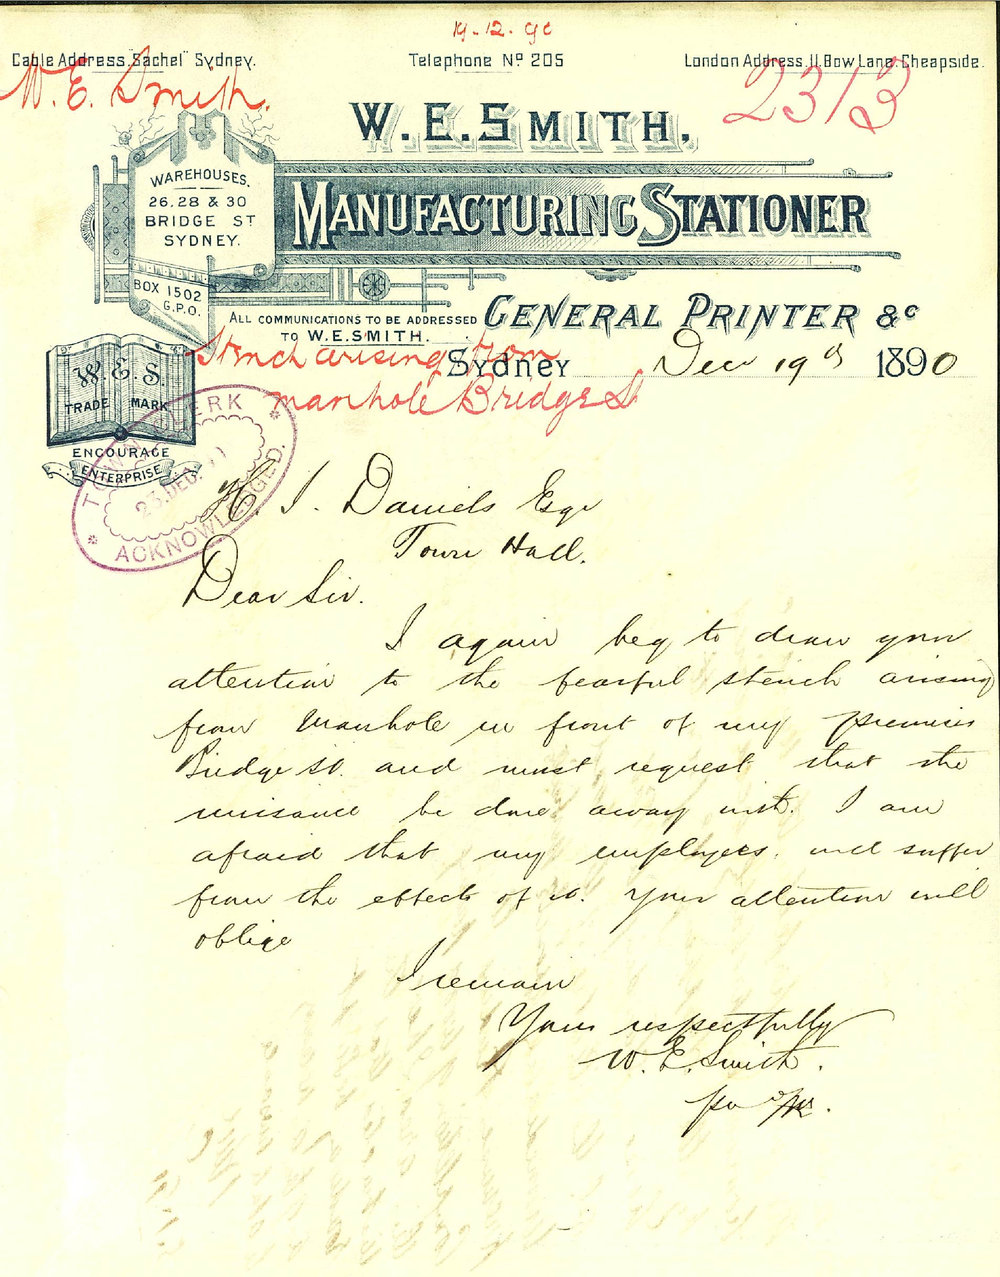 19-12-90
Cable Address "Sachel" Sydney.
Telephone Nº 205
London Address 11 Bow Lane Cheapside.
W. E. Smith.
2313
W. E. SMITH.
MANUFACTURING STATIONER
WAREHOUSES.
26.28 & 30
BRIDGE ST
SYDNEY.
BOX 1502
G.P.O.
GENERAL PRINTER &c
ALL COMMUNICATIONS TO BE ADDRESSED
TO W.E.SMITH.
Stench arising from
manhole Bridge St
Sydney Dec 19th 1890
W.E.S.
TRADE MARK
ENCOURAGE
ENTERPRISE
TOWN CLERK
23.DEC.
ACKNOWLEDGED.
H. I. Daniels Esqr
Town Hall.
Dear Sir.
I again beg to draw your
attention to the fearful stench arising
from Manhole in front of my premises
Bridge St. and must request that the
nuisance be done away with. I am
afraid that my employees. will suffer
from the effects of it. Your attention will
oblige
I remain
Yours respectfully
W. E. Smith.